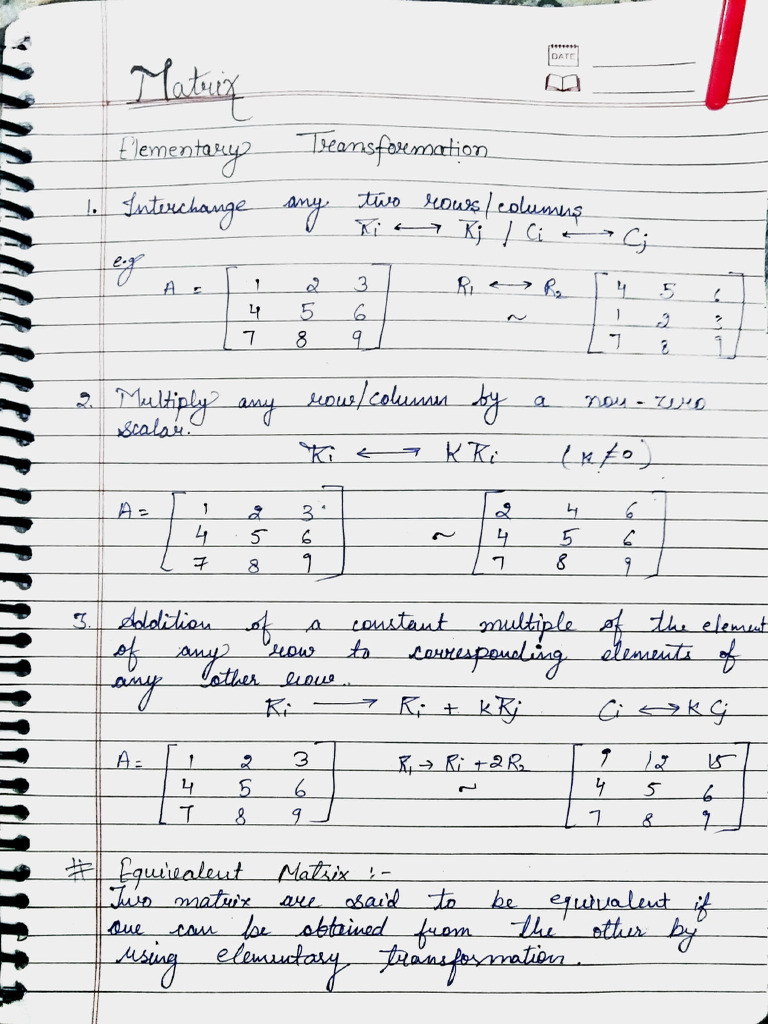 DATE
Matrix
Elementary Transformation
1. Interchange any two rows/columns
Ri ⟷ Rj / Ci ⟷ Cj
e.g
A = [ 1 2 3 R1 ⟷ R2 [ 4 5 6
4 5 6 ~ 1 2 3
7 8 9 ] 7 8 9 ]
2. Multiply any row/column by a non-zero
scalar.
Ri ⟷ KRi (k≠0)
A = [ 1 2 3 [ 2 4 6
4 5 6 ~ 4 5 6
7 8 9 ] 7 8 9 ]
3. Addition of a constant multiple of the element
of any row to corresponding elements of
any other row.
Ri ⟶ Ri + kRj Ci ⟷ KCj
A = [ 1 2 3 R1 → Ri + 2R2 [ 9 12 15
4 5 6 ~ 4 5 6
7 8 9 ] 7 8 9 ]
# Equivalent Matrix :-
Two matrix are said to be equivalent if
one can be obtained from the other by
using elementary transformation.